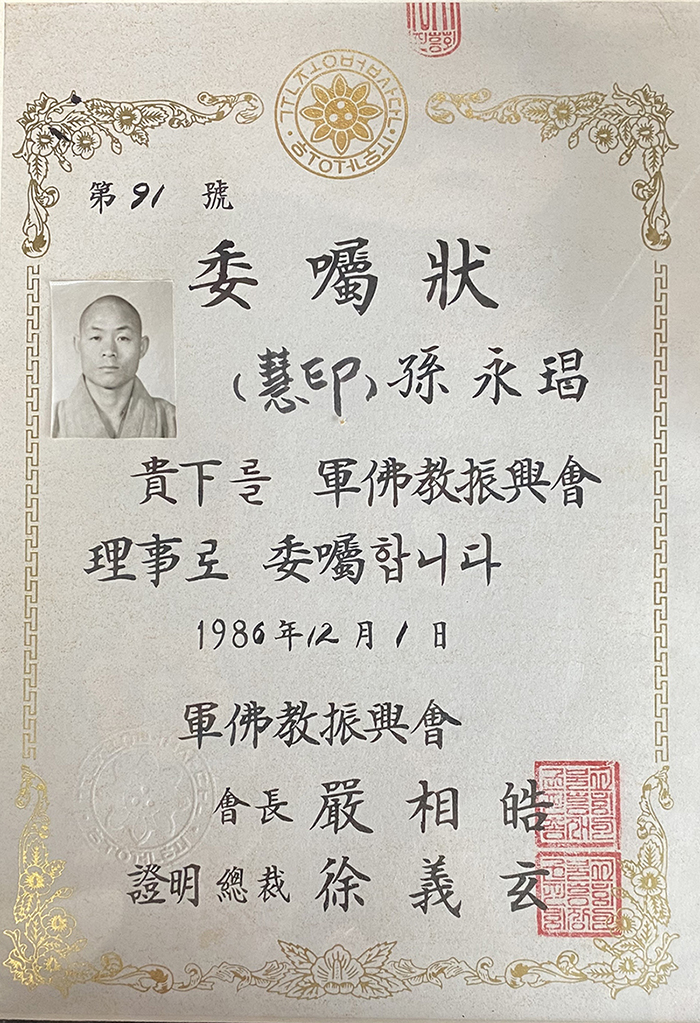 第 91 號
委囑狀
(慧印) 孫永琩
貴下를 軍佛教振興會
理事로 委囑합니다
1986年 12月 1日
軍佛教振興會
會長 嚴相皓
證明 總裁 徐義玄